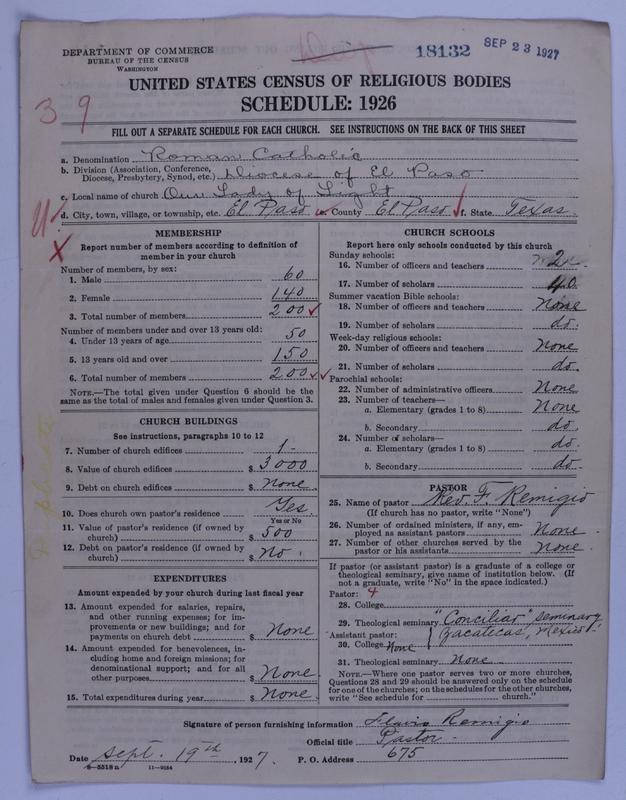 DEPARTMENT OF COMMERCE
BUREAU OF THE CENSUS
WASHINGTON
18132
SEP 23 1927
UNITED STATES CENSUS OF RELIGIOUS BODIES
SCHEDULE: 1926
39
FILL OUT A SEPARATE SCHEDULE FOR EACH CHURCH. SEE INSTRUCTIONS ON THE BACK OF THIS SHEET
a. Denomination Roman Catholic
b. Division (Association, Conference, Diocese, Presbytery, Synod, etc.) Diocese of El Paso
c. Local name of church Our Lady of Light
d. City, town, village, or township, etc. El Paso e. County El Paso f. State Texas.
MEMBERSHIP
Report number of members according to definition of
member in your church
Number of members, by sex:
1. Male 60
2. Female 140
3. Total number of members 200
Number of members under and over 13 years old:
4. Under 13 years of age 50
5. 13 years old and over 150
6. Total number of members 200
NOTE.—The total given under Question 6 should be
same as the total of males and females given under Question 3.
CHURCH BUILDINGS
See instructions, paragraphs 10 to 12
7. Number of church edifices 1-
8. Value of church edifices $ 3000
9. Debt on church edifices $ None
10. Does church own pastor's residence Yes.
Yes or No
11. Value of pastor's residence (if owned by
church) $ 500
12. Debt on pastor's residence (if owned by
church) $ No.
EXPENDITURES
Amount expended by your church during last fiscal year
13. Amount expended for salaries, repairs,
and other running expenses; for im-
provements or new buildings; and for
payments on church debt $ None
14. Amount expended for benevolences, in-
cluding home and foreign missions; for
denominational support; and for all
other purposes $ None
15. Total expenditures during year $ None
CHURCH SCHOOLS
Report here only schools conducted by this church
Sunday schools:
16. Number of officers and teachers 2
17. Number of scholars 40
Summer vacation Bible schools:
18. Number of officers and teachers None
19. Number of scholars do.
Week-day religious schools:
20. Number of officers and teachers None
21. Number of scholars do.
Parochial schools:
22. Number of administrative officers None
23. Number of teachers—
a. Elementary (grades 1 to 8) None
b. Secondary do.
24. Number of scholars—
a. Elementary (grades 1 to 8) do.
b. Secondary do.
PASTOR
25. Name of pastor Rev. F. Remigio
(If church has no pastor, write "None")
26. Number of ordained ministers, if any, em-
ployed as assistant pastors None
27. Number of other churches served by the
pastor or his assistants None
If pastor (or assistant pastor) is a graduate of a college or
theological seminary, give name of institution below. (If
not a graduate, write "No" in the space indicated.)
Pastor: 4
28. College
29. Theological seminary "Conciliar" Seminary
Assistant pastor: Zacatecas, Mexico.
30. College None
31. Theological seminary None
NOTE.—Where one pastor serves two or more churches,
Questions 28 and 29 should be answered only on the schedule
for one of the churches; on the schedules for the other churches,
write "See schedule for church."
Signature of person furnishing information Flavio Remigio
Official title Pastor.
Date Sept. 19th, 1927. P. O. Address 675
8-5518a 11-9184